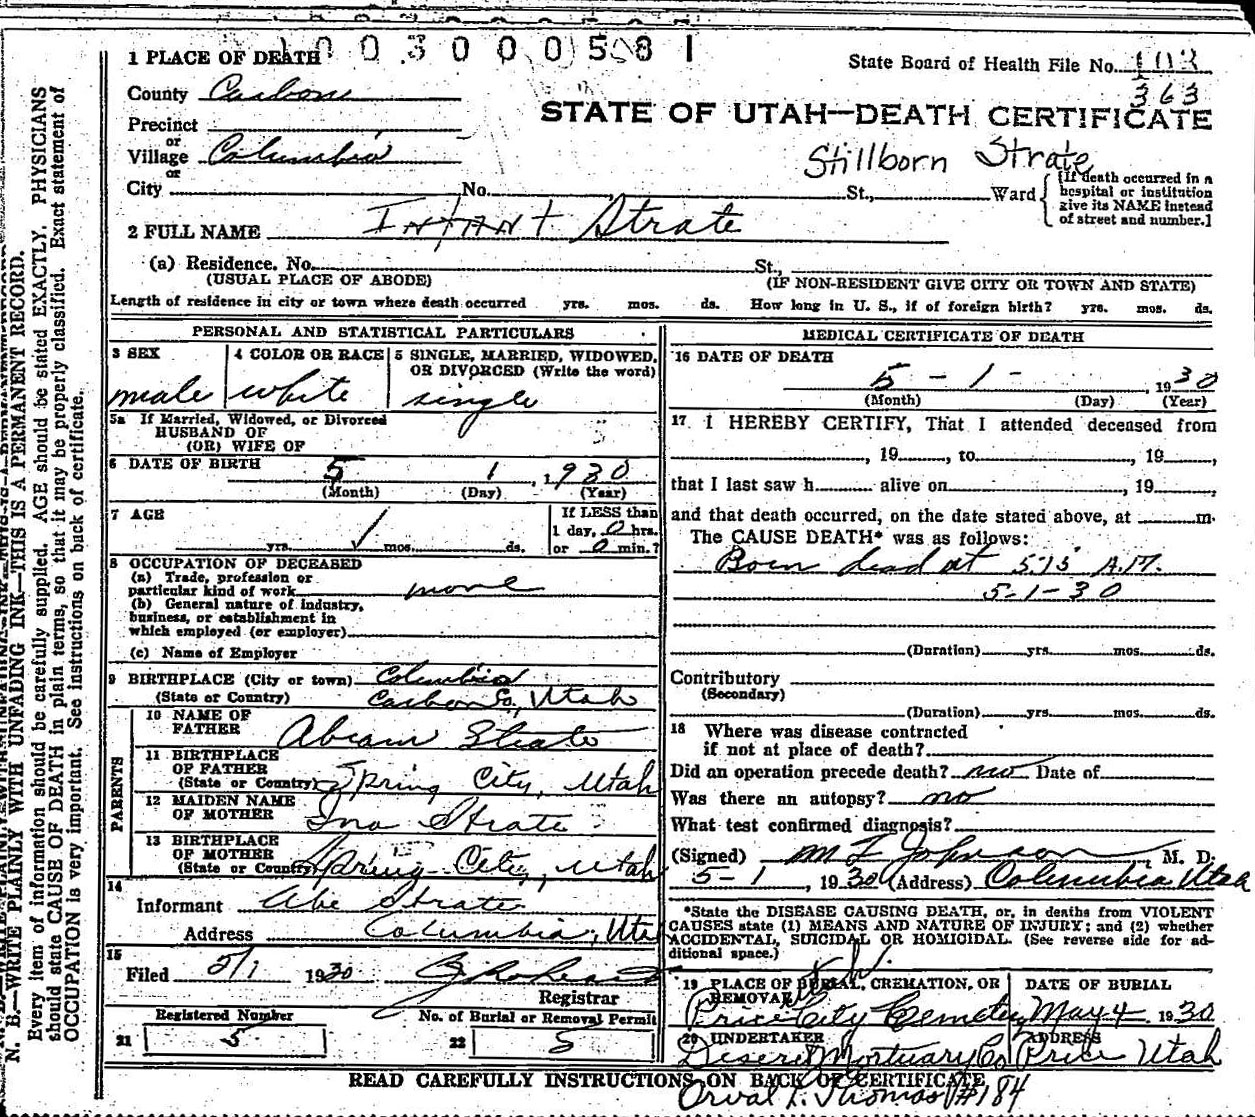 1 0 0 3 0 0 0 5 8 1
1 PLACE OF DEATH
State Board of Health File No. 103
363
County Carbon
STATE OF UTAH—DEATH CERTIFICATE
Precinct
or
Village Columbia
Stillborn Strate
or
City No. St., Ward
[If death occurred in a hospital or institution give its NAME instead of street and number.]
2 FULL NAME Infant Strate
(a) Residence. No. St.,
(USUAL PLACE OF ABODE) (IF NON-RESIDENT GIVE CITY OR TOWN AND STATE)
Length of residence in city or town where death occurred yrs. mos. ds. How long in U. S., if of foreign birth? yrs. mos. ds.
PERSONAL AND STATISTICAL PARTICULARS
3 SEX 4 COLOR OR RACE 5 SINGLE, MARRIED, WIDOWED, OR DIVORCED (Write the word)
male white single
5a If Married, Widowed, or Divorced
HUSBAND OF
(OR) WIFE OF
6 DATE OF BIRTH 5 1, 1930
(Month) (Day) (Year)
7 AGE If LESS than
1 day, 0 hrs.
yrs. mos. ds. or 0 min.?
8 OCCUPATION OF DECEASED
(a) Trade, profession or
particular kind of work none
(b) General nature of industry,
business, or establishment in
which employed (or employer)
(c) Name of Employer
9 BIRTHPLACE (City or town) Columbia
(State or Country) Carbon Co., Utah
PARENTS
10 NAME OF
FATHER Abram Strate
11 BIRTHPLACE
OF FATHER
(State or Country) Spring City, Utah
12 MAIDEN NAME
OF MOTHER Ina Strate
13 BIRTHPLACE
OF MOTHER
(State or Country) Spring City, Utah
14
Informant Abe Strate
Address Columbia, Utah
15
Filed 5/1 1930
Registrar
Registered Number No. of Burial or Removal Permit
21 5 22 5
MEDICAL CERTIFICATE OF DEATH
16 DATE OF DEATH
5 - 1 - , 1930
(Month) (Day) (Year)
17 I HEREBY CERTIFY, That I attended deceased from
, 19 , to , 19 ,
that I last saw h alive on , 19
and that death occurred, on the date stated above, at m.
The CAUSE DEATH* was as follows:
Born dead at 5:15 A.M.
5-1-30
(Duration) yrs. mos. ds.
Contributory
(Secondary)
(Duration) yrs. mos. ds.
18 Where was disease contracted
if not at place of death?
Did an operation precede death? no Date of
Was there an autopsy? no
What test confirmed diagnosis?
(Signed) M T Johnson, M. D.
5-1, 1930 (Address) Columbia Utah
*State the DISEASE CAUSING DEATH, or, in deaths from VIOLENT
CAUSES state (1) MEANS AND NATURE OF INJURY; and (2) whether
ACCIDENTAL, SUICIDAL OR HOMICIDAL. (See reverse side for ad-
ditional space.)
19 PLACE OF BURIAL, CREMATION, OR REMOVAL DATE OF BURIAL
Price City Cemetery May 4 1930
20 UNDERTAKER ADDRESS
Deseret Mortuary Co Price Utah
READ CAREFULLY INSTRUCTIONS ON BACK OF CERTIFICATE
Orval L. Thomas #184
N. B.—WRITE PLAINLY WITH UNFADING INK—THIS IS A PERMANENT RECORD.
Every item of information should be carefully supplied. AGE should be stated EXACTLY. PHYSICIANS
should state CAUSE OF DEATH in plain terms, so that it may be properly classified. Exact statement of
OCCUPATION is very important. See instructions on back of certificate.